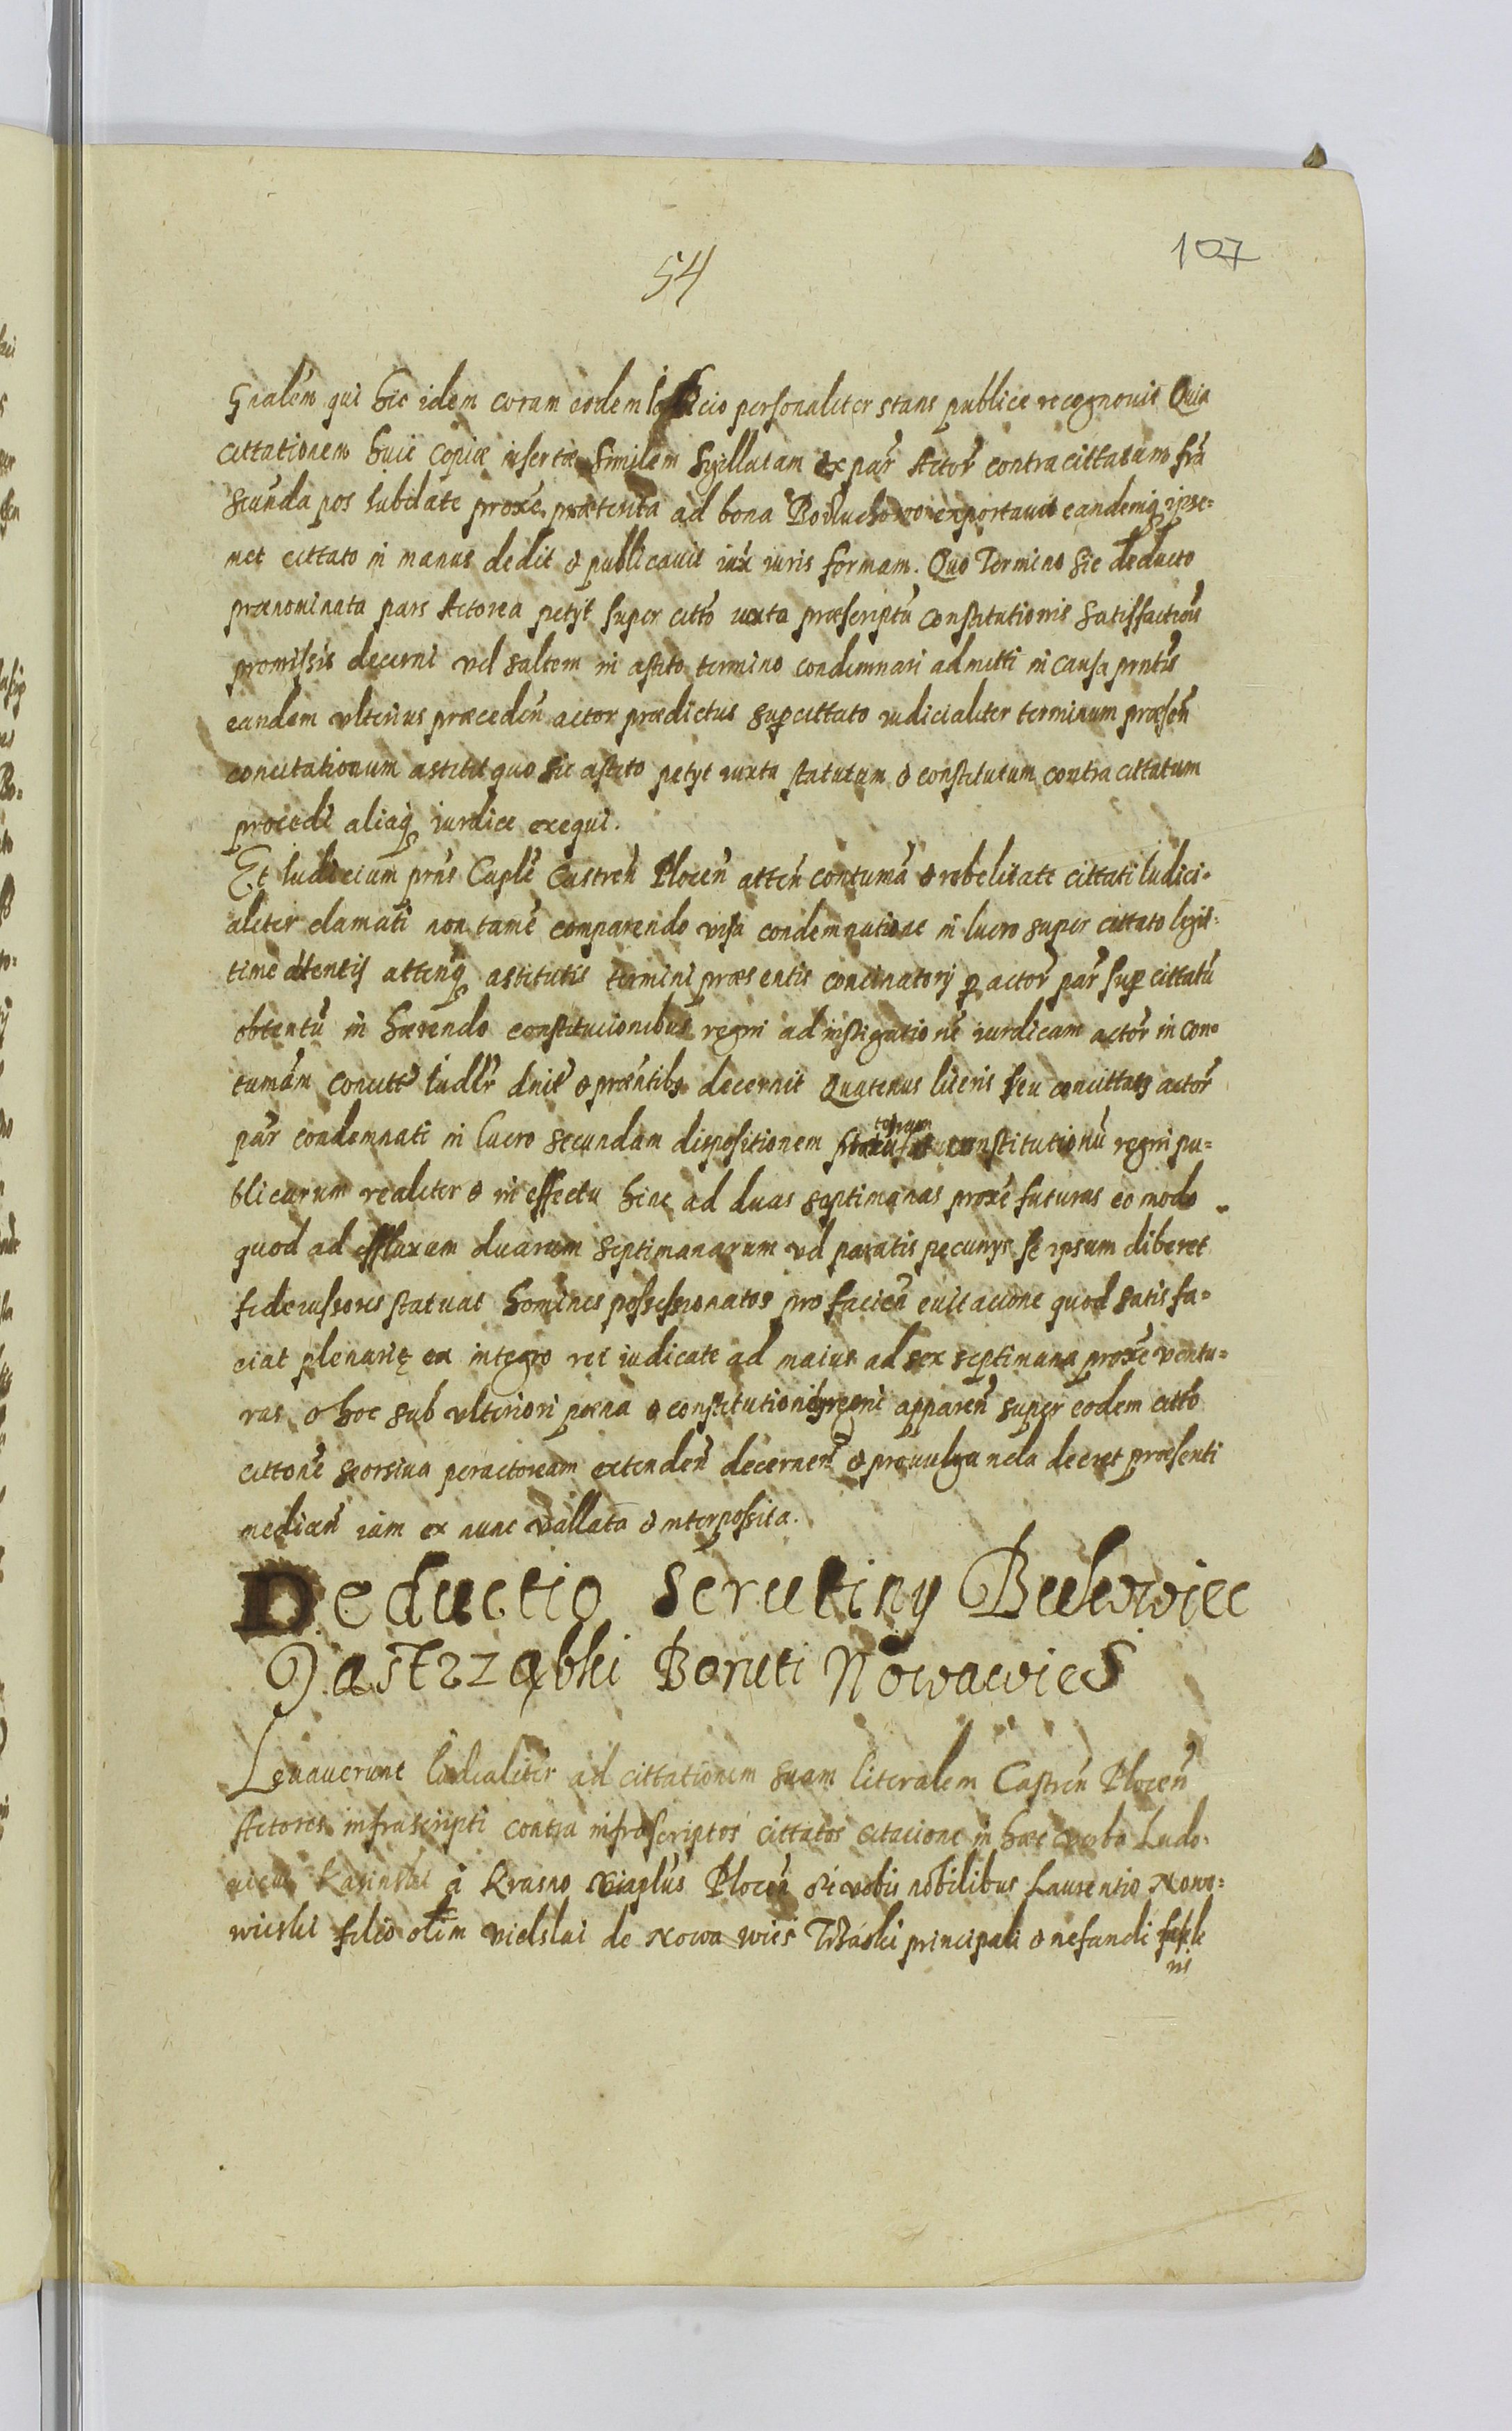 54
107
Gnalem qui hic idem coram eodem personaliter stans publice recognovit Quia
cittationem huic copiæ insertæ similem sygillatam ex par Actor contra cittatum
secunda pos proxe præterita ad bona exportavit eandemq ipse=
met cittato in manus dedit & publicavit iux iuris formam. Quo Termino sic deducto
prænominata pars Actorea petyt super citto iuxta præscriptu Constitutionis satisfactionē
promissis decerni vel saltem in astito termino condemnari admitti in causa
eandem ulterius præceden actor prædictus sup cittato iudicialiter terminum præsen
concitationum astitit quo sic astito petyt iuxta statutum & constitutum contra cittatum
procedi aliaq iurdice exequi.
Et Iudicium prns Caple Castren Plocen atten contuma & rebelitate cittati Iudici=
aliter clamati non tame comparendo visa condemnatione in lucro super cittato legit=
time attenq astitutis termini præsentis concinatory p actor par sup cittatu
obtentu in hærendo constitucionibus regni ad instigatione iurdicam actor in con=
tumam decernit Quatenus actor
par condemnati in lucro secundam dispositionem torum constitutionu regni pu=
blicarum realiter & in effectu hinc ad duas septimanas proxe futuras eo modo
quod ad effluxum duarum septimanarum vel paratis pecunys se ipsum liberet
fideiussores statuat homines possessionatos pro facien evictione quod satisfa=
ciat plenarię ex integro rei iudicate ad maius ad sex septimana proxe ventu=
ras & hoc sub ulteriori pœna & constitutioni regni apparen super eodem citto
cittone seorsiva peractoream extenden decernen & decret præsenti
median iam ex nunc vallata & nterposita.
Deductio Scrutiny Bukowiec
Jastrząbki Boruti Nowawies
Levaverunt Iudialiter ad cittationem suam literalem Castren Plocen
Actores infrascripti contra infrascriptos cittatos citacione in hæc verba Ludo=
vicus Kasinski à Krasno Plocen vobis nobilibus Laurentio Nowo=
wieski filio olim de Nowa wies Trzaski principali & nefandi